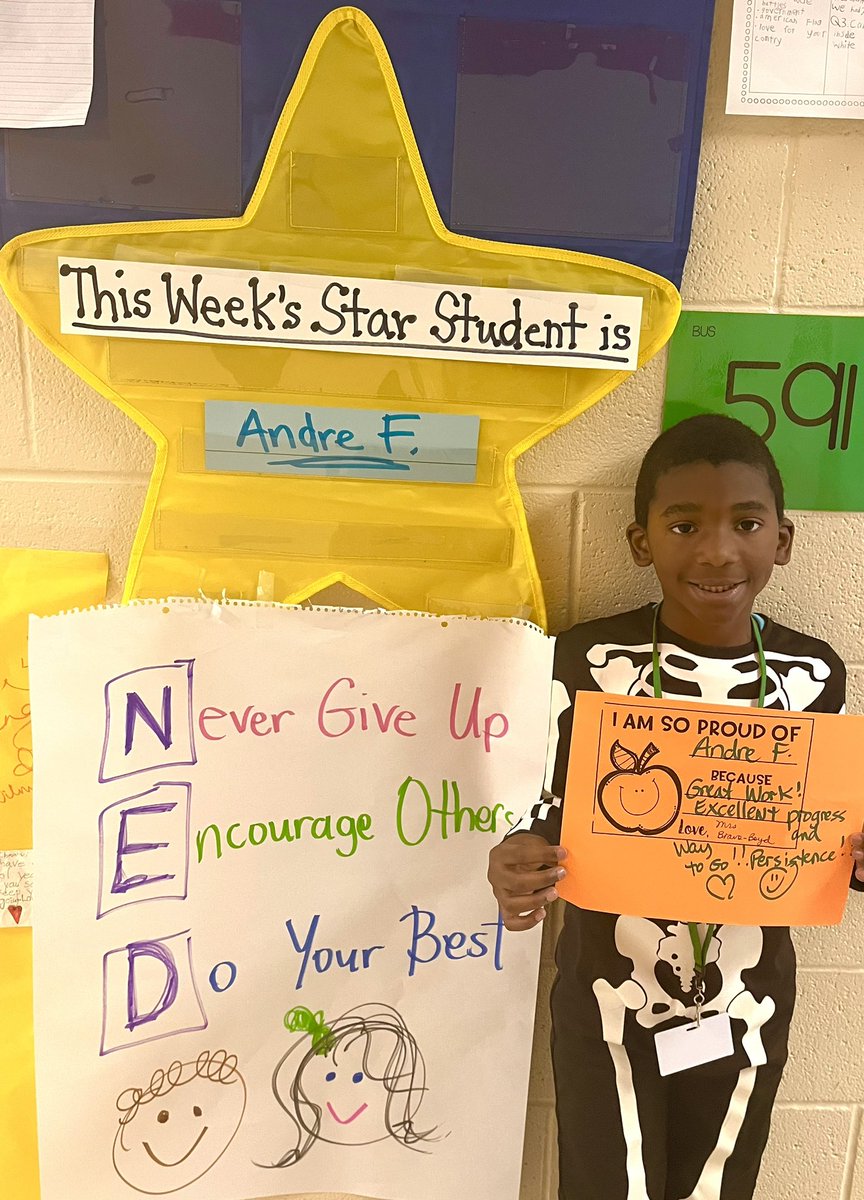 government
American Flag
love for your
country
we had
Q3.
inside
white
This Week's Star Student is
Andre F.
BUS
591
Never Give Up
Encourage Others
Do Your Best
I AM SO PROUD OF
Andre F.
BECAUSE
Great Work!
Excellent progress
and
Love, Mrs Bravo-Boyd
Way
to Go !! Persistence